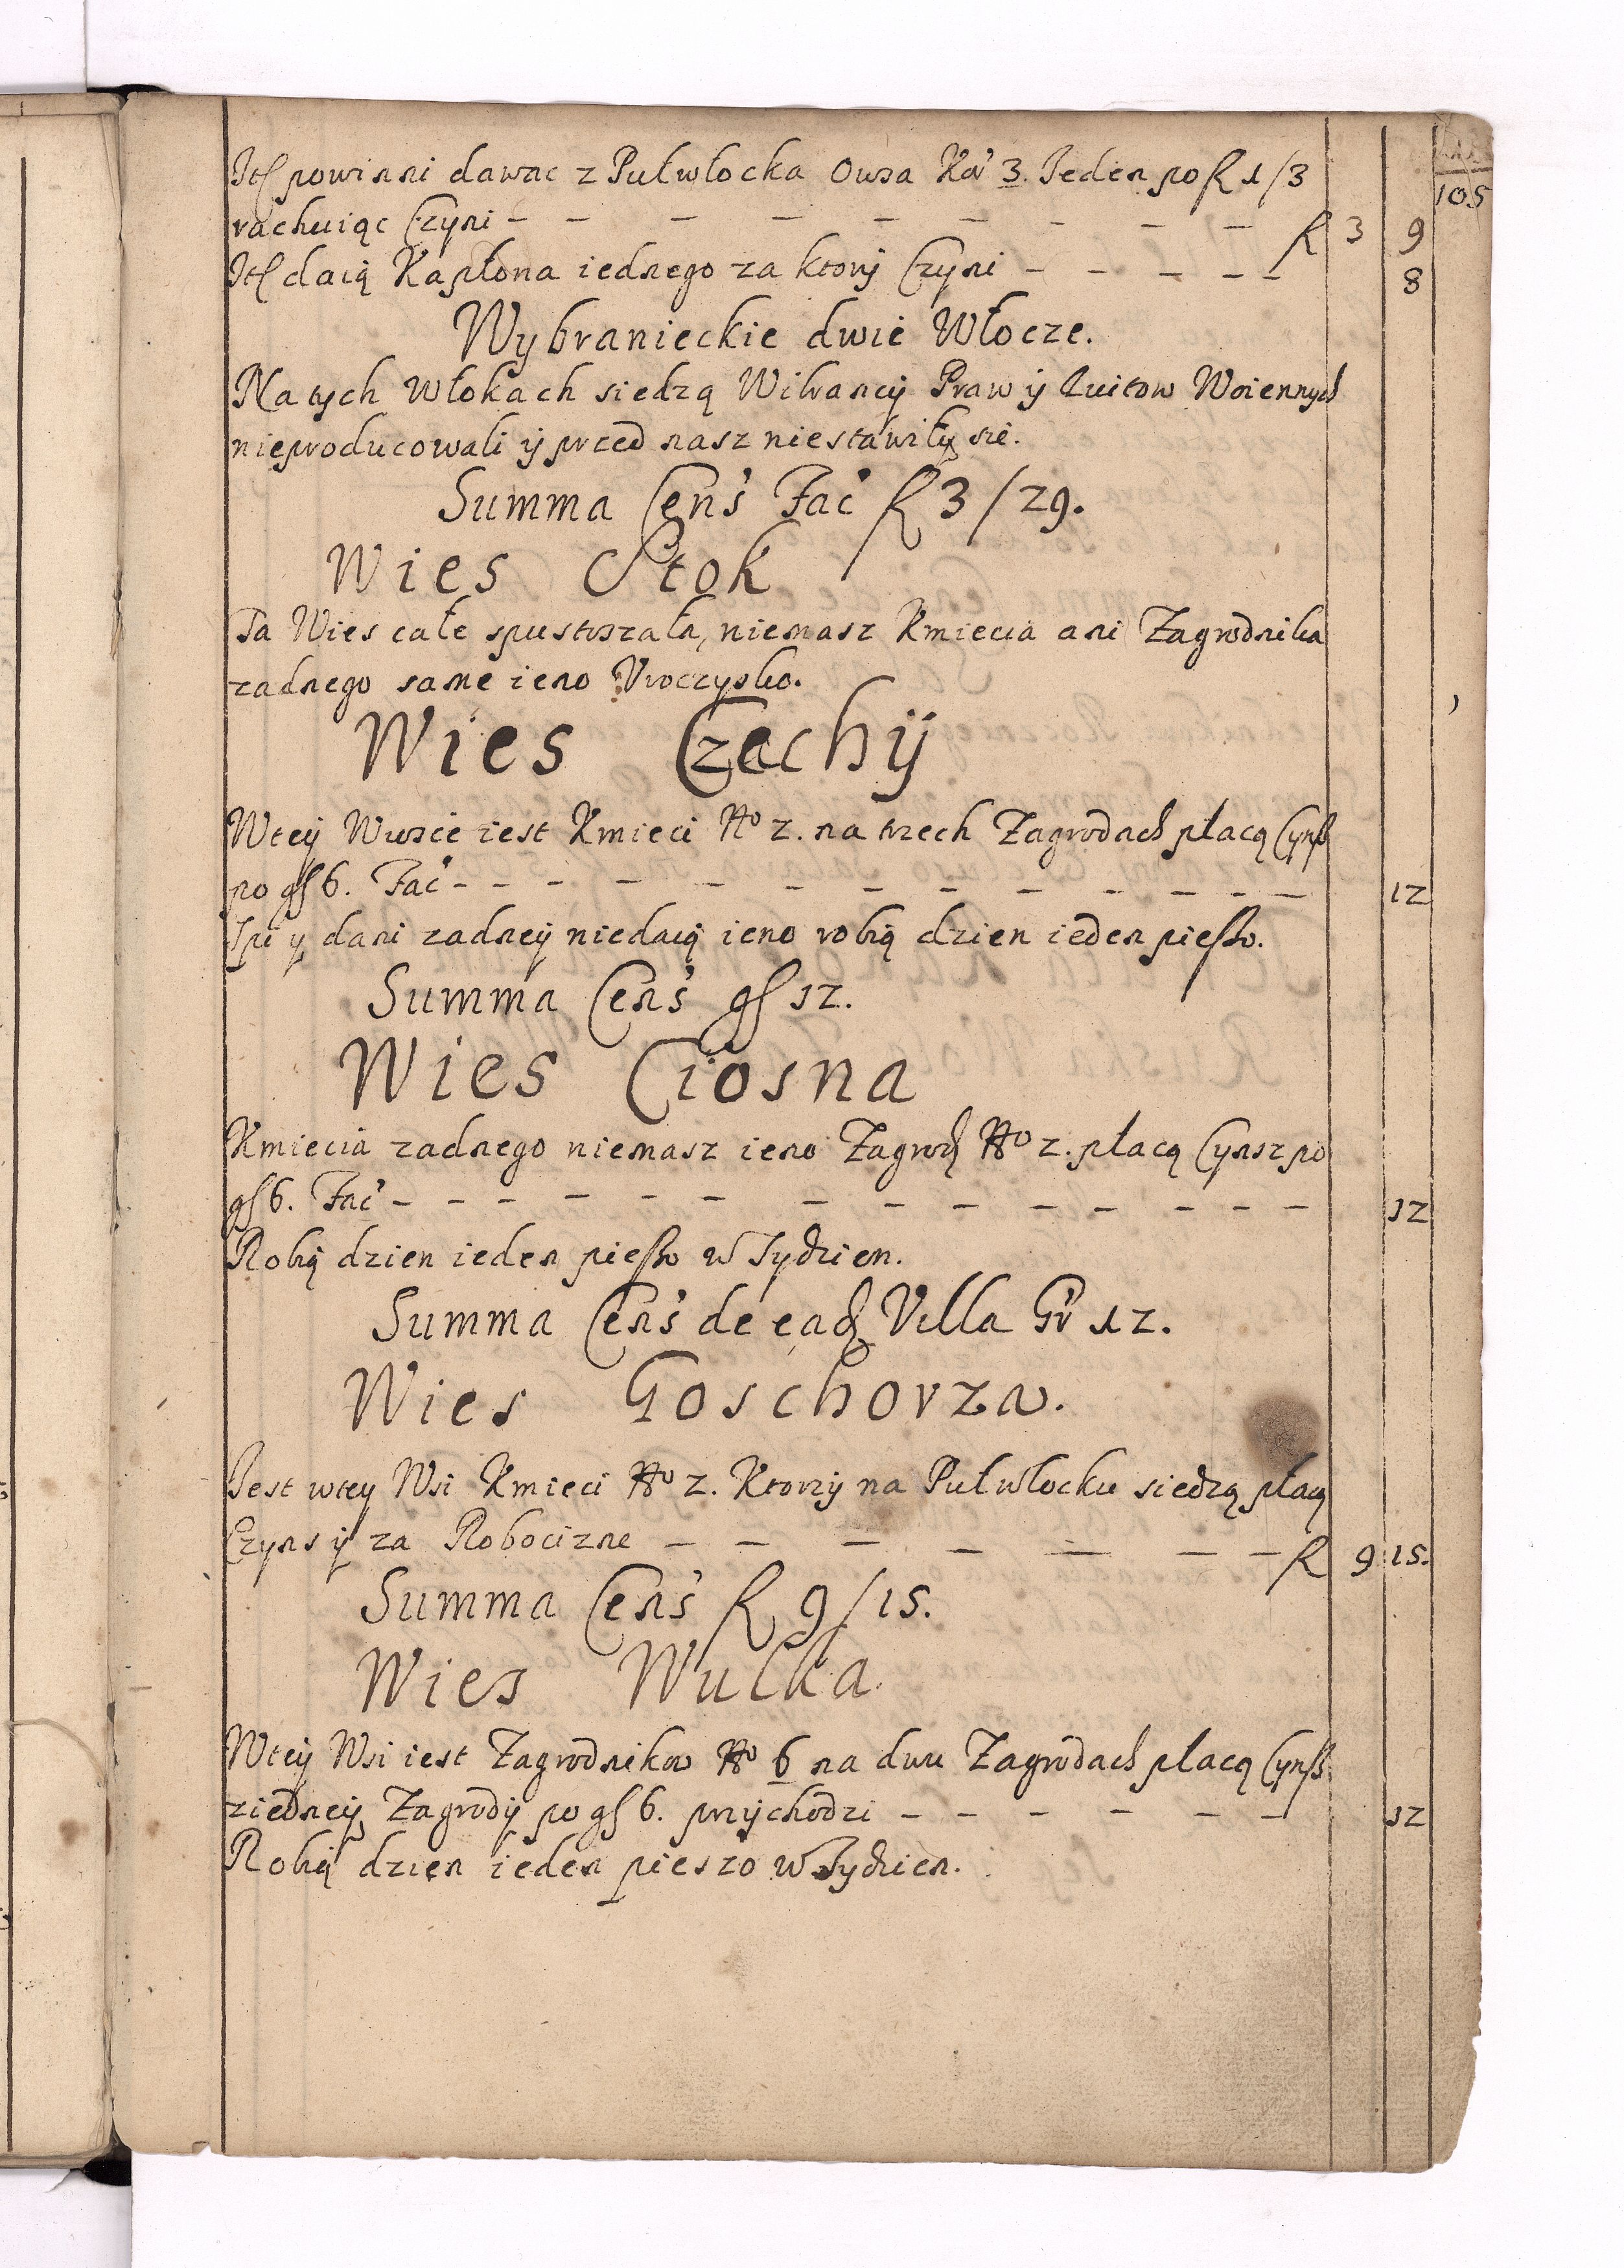 105
Itt powinni dawac z Pułwłocka Owsa Ko' 3. Jeden po f 1/3
rachuiąc Czyni — — — — — — — — — f 3 9
Itt daią Kapłona iednego za ktorij Czyni — — — — — 8
Wybranieckie dwie Włocze.
Na tych Włokach siedzą Wibrancij Praw ij kwitow Woiennych
nieproducowali ij przed nasz niestawiły sie.
Summa Cens' Fac' f 3/29.
Wies Stok
Ta Wies całe spustoszała, niemasz Kmiecia ani Zagrodnika
zadnego same ieno Vroczysko.
Wies Czechij
Wteij Wiosce iest Kmieci No 2. na trzech Zagrodach płacą Cynß
po gß 6. Fac' — — — — — — — — — — — — 12
Ipi y dani zadneij niedaią ieno robią dzien ieden pießo.
Summa Cens' gß 12.
Wies Ciosna
Kmiecia zadnego niemasz ieno Zagrod No 2. płacą Cynsz po
gß 6. Fac' — — — — — — — — — — — — — 12
Robią dzien ieden pießo w Tydzien.
Summa Cens' de ead Villa Gr' 12.
Wies Goschorza.
Jest wtey Wsi Kmieci No 2. Ktorzij na Pułwłocku siedzą płacą
Czyns ij za Robocizne — — — — — — — f 9 15.
Summa Cens' f 9/15.
Wies Wulka.
Wteij Wsi iest Zagrodnikow No 6 na dwu Zagrodach płacą Cynß
ziedneij Zagrodij po gß 6. przijchodzi — — — — — — 12
Robią dzien ieden pieszo w Tydzien.